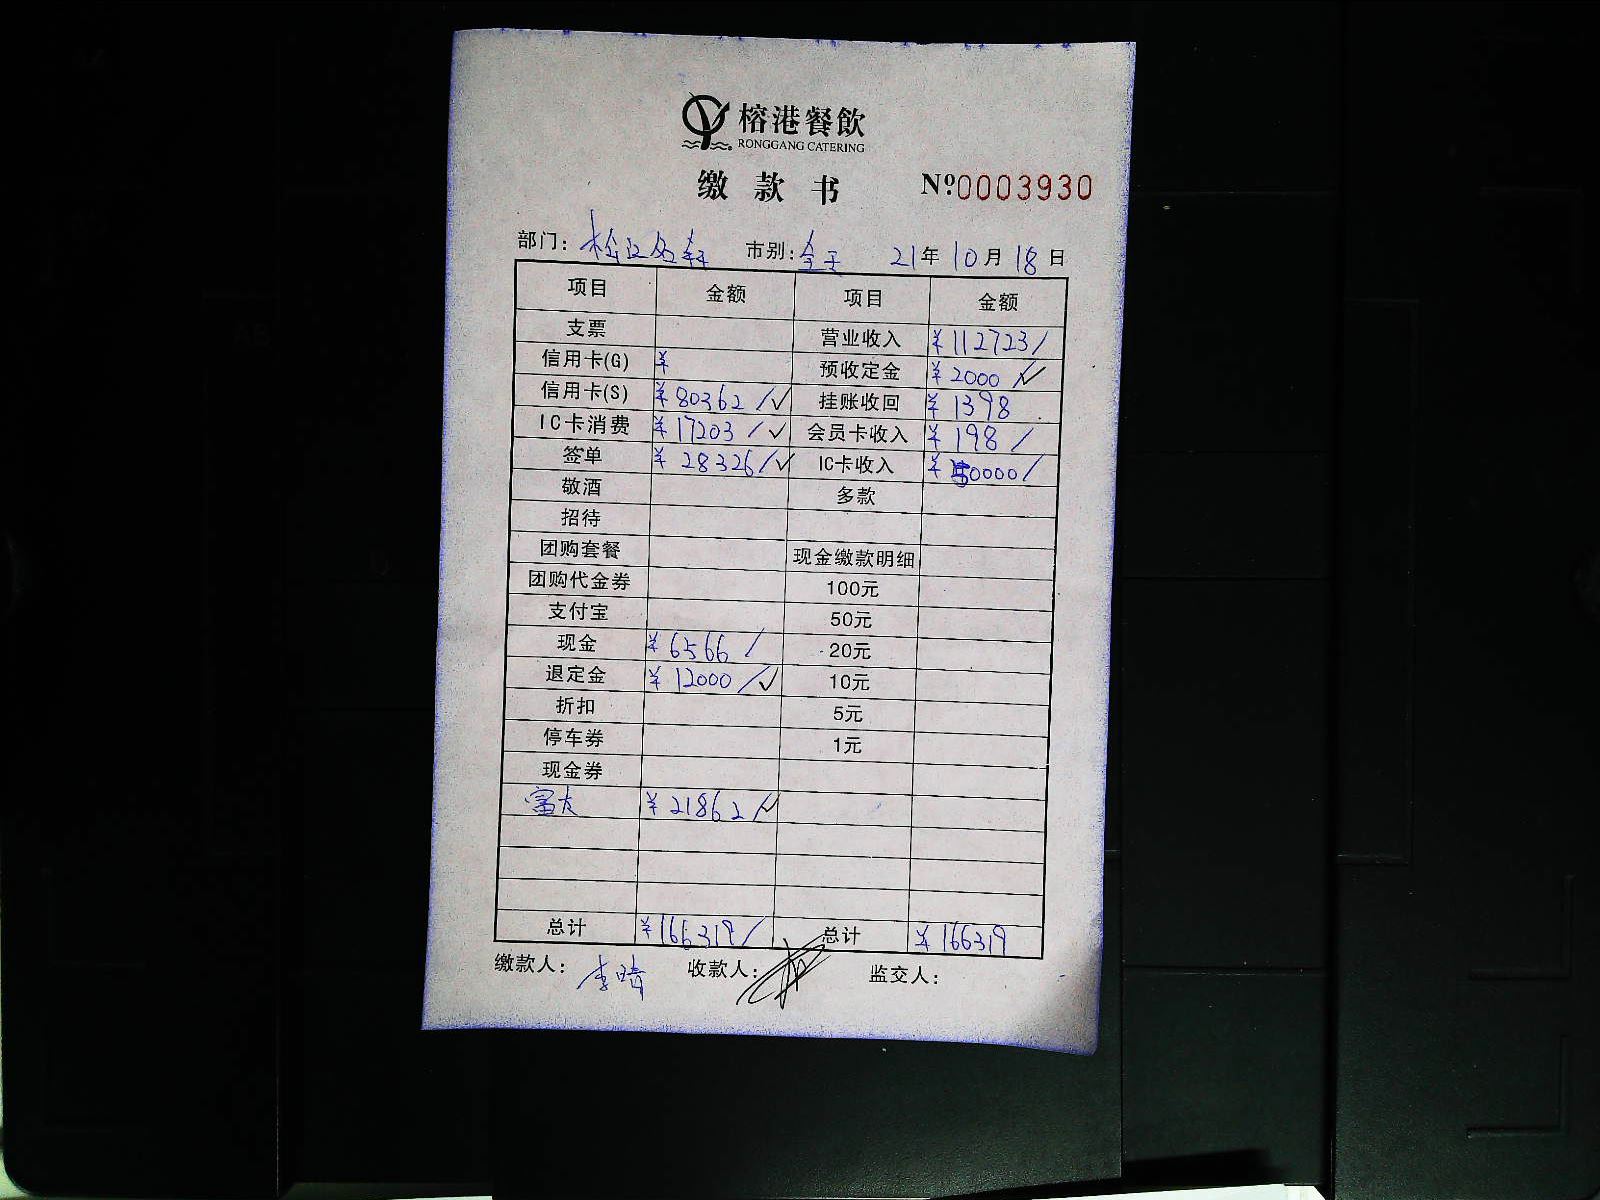 榕港餐飲
RONGGANG CATERING
缴款书 №0003930
部门: 市别: 全天 21年10月18日
项目 金额 项目 金额
支票 营业收入 ¥112723/
信用卡(G) ¥ 预收定金 ¥2000/✓
信用卡(S) ¥80362/✓ 挂账收回 ¥1398
IC卡消费 ¥17203/✓ 会员卡收入 ¥198/
签单 ¥28326/✓ IC卡收入 ¥50000/
敬酒 多款
招待
团购套餐 现金缴款明细
团购代金券 100元
支付宝 50元
现金 ¥6566/ 20元
退定金 ¥12000/✓ 10元
折扣 5元
停车券 1元
现金券
富友 ¥21862/✓
总计 ¥166319/ 总计 ¥166319
缴款人: 李晴 收款人: 监交人: